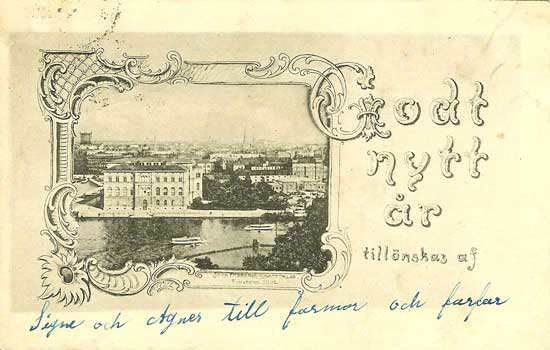 Godt
nytt
år
tillönskas af
Signe och Agnes till farmor och farfar